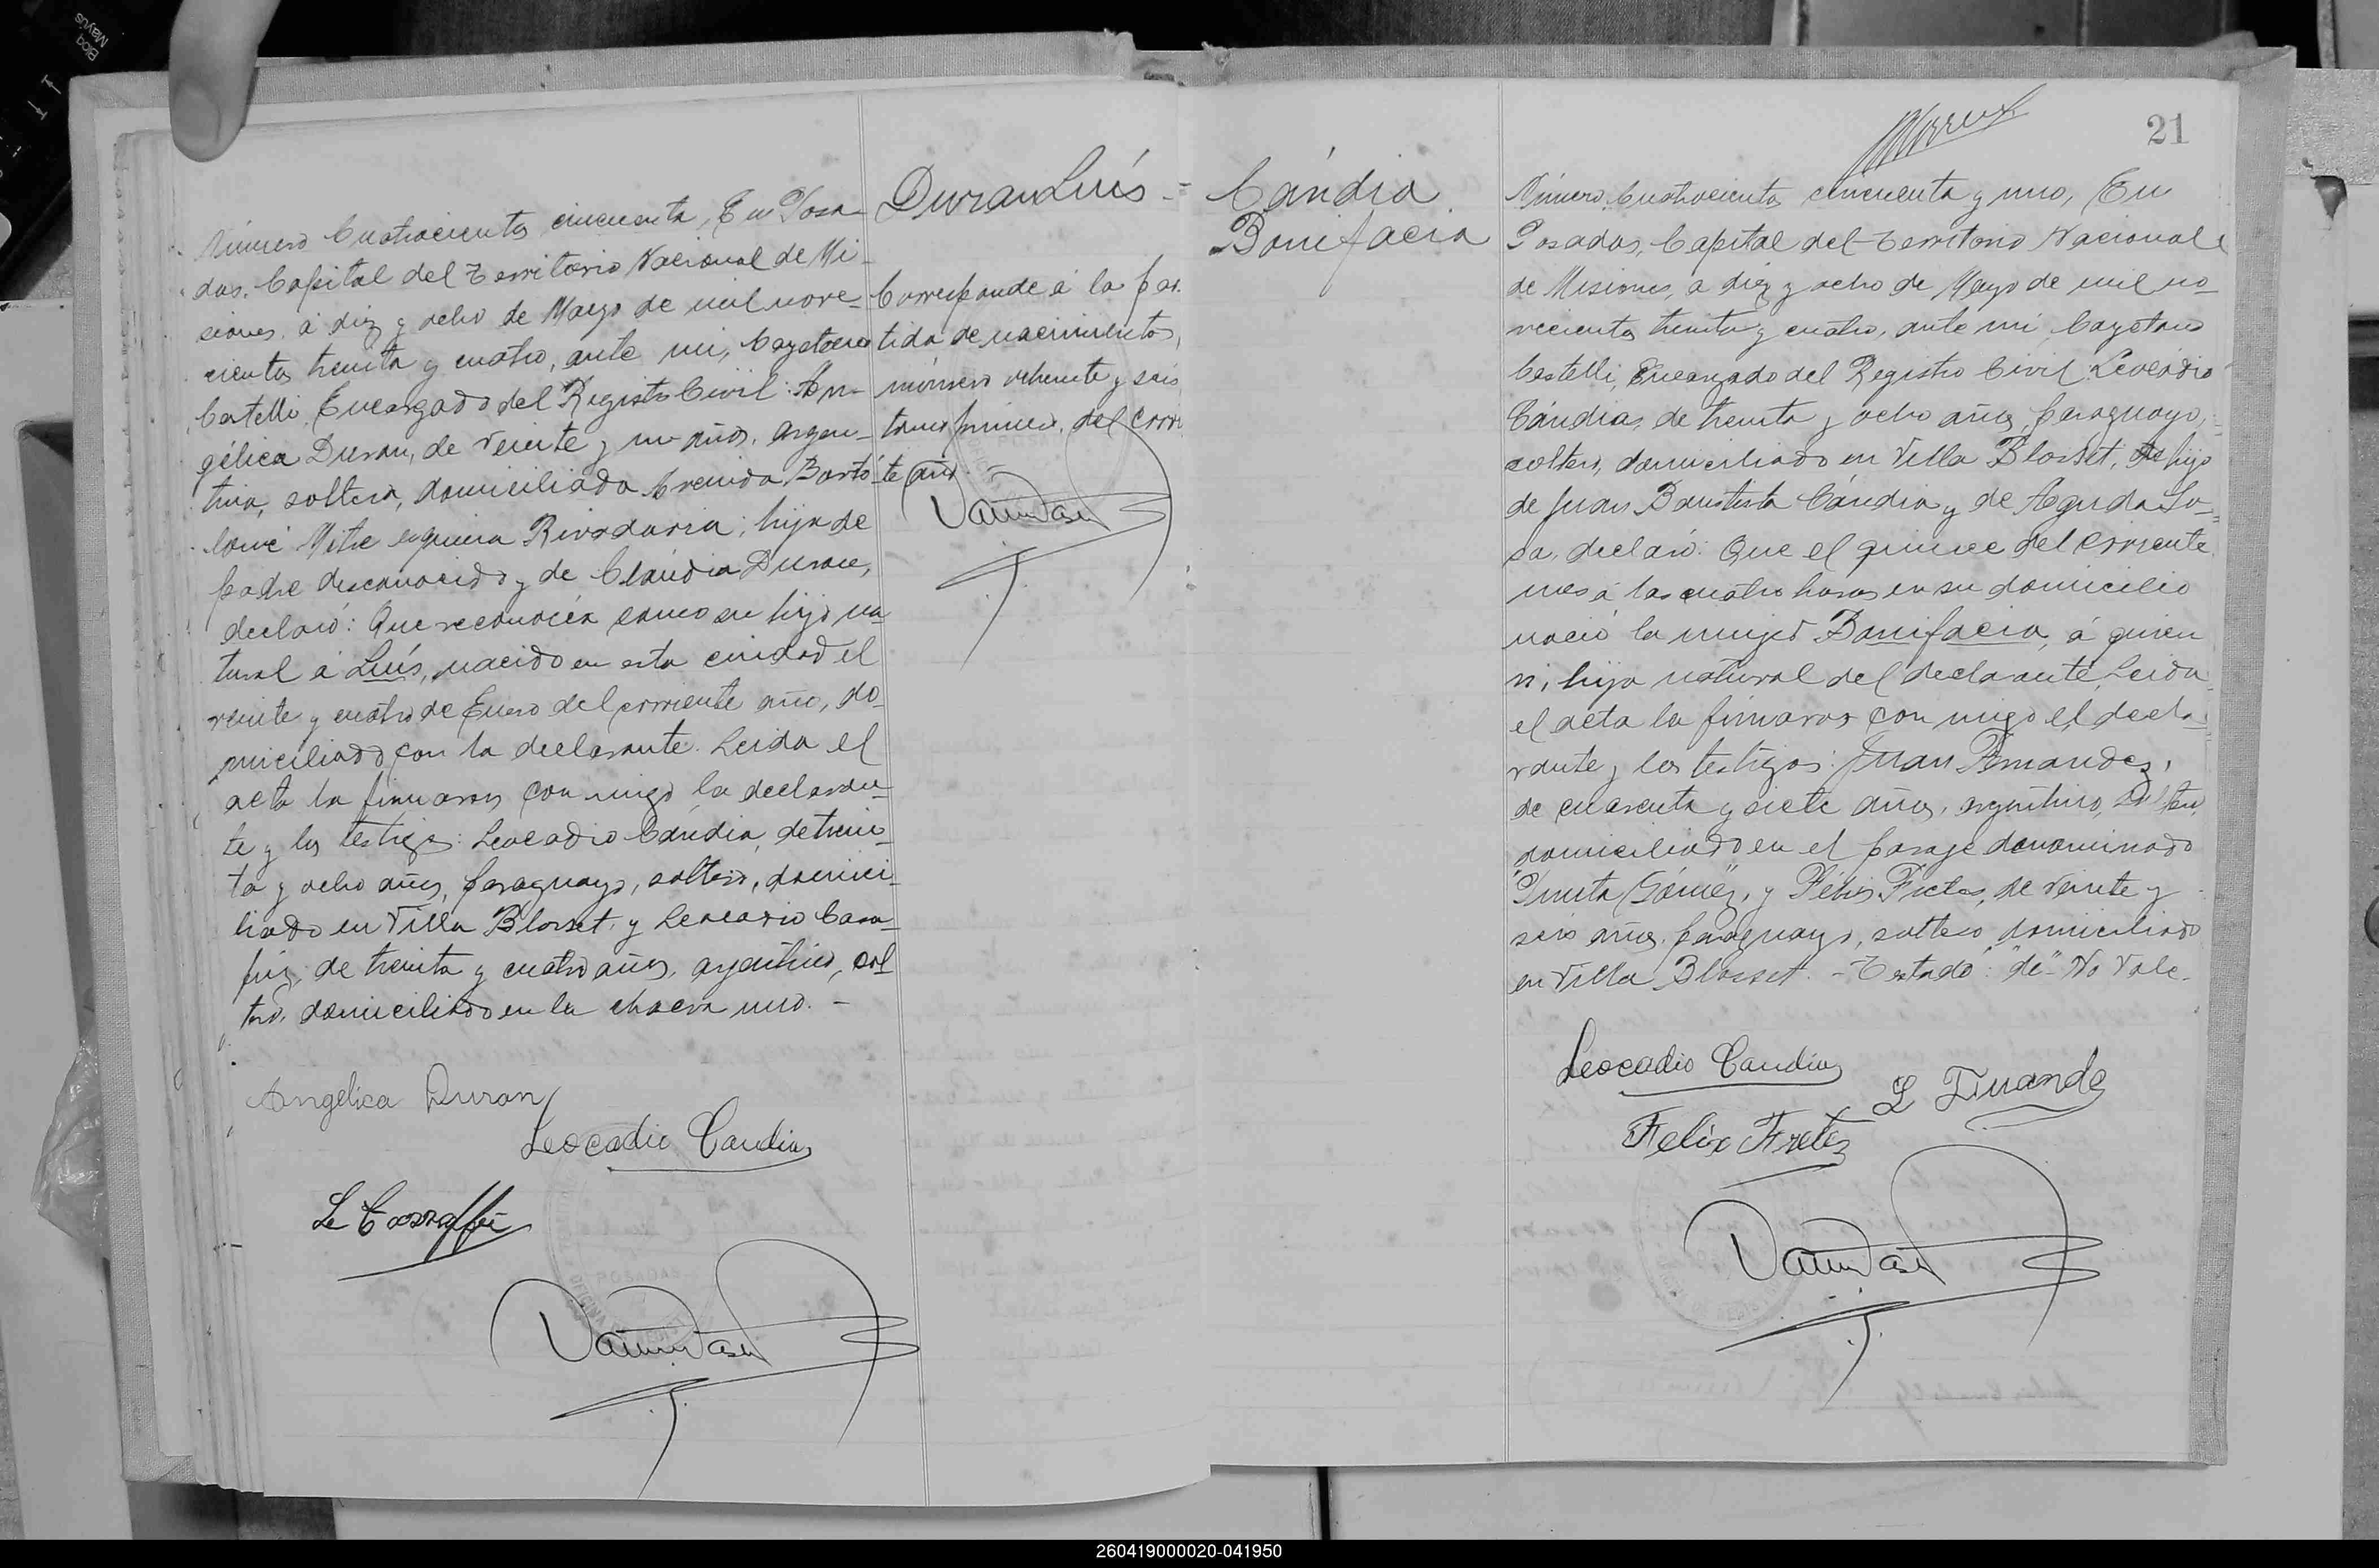 Bloq
Mayús
Número Cuatrocientos cincuenta, En Posa-
das, Capital del Territorio Nacional de Mi-
siones, á diez y ocho de Mayo de mil nove-
cientos treinta y cuatro, ante mi, Cayetano
Castelli, Encargado del Registro Civil: An-
gélica Duran, de veinte y un años, argen-
tina, soltera, domiciliada Avenida Barto-
lomé Mitre esquina Rivadavia; hija de
padre desconocido y de Cláudia Duran,
declaró: Que reconocía como su hijo na
tural á Luís, nacido en esta ciudad el
veinte y cuatro de Enero del corriente año, do-
miciliado con la declarante. Leida el
acta la firmaron con migo la declaran-
te y los testigos: Leocadio Cándia, de trein-
ta y ocho años, paraguayo, soltero, domici-
liado en Villa Blosset, y Leocadio Cara-
fini, de treinta y cuatro años, argentino, sol
tero, domiciliado en la chacra uno. -
Angélica Duran
Leocadio Candia
POSADAS
Duran Luís -
Corresponde á la par-
tida de nacimientos,
número ochenta y seis
tomo primero, del corrien
te año
Cándia
Bonifacia
21
Número Cuatrocientos cincuenta y uno, En
Posadas, Capital del Territorio Nacional
de Misiones, a diez y ocho de Mayo de mil no-
vecientos treinta y cuatro, ante mi, Cayetano
Castelli, Encargado del Registro Civil: Leocádio
Cándia, de treinta y ocho años, paraguayo,
soltero, domiciliado en Villa Blosset, de hijo
de Juan Bautista Cándia y de Agueda So-
sa, declaró: Que el quince del corriente
mes á las cuatro horas en su domicilio
nació la mujer Bonifacia, á quien
vi, hija natural del declarante. Leida
el acta la firmaron con migo el decla-
rante y los testigos: Juan Fernandez,
de cuarenta y siete años, argentino, soltero,
domiciliado en el paraje denominado
"Puesta Gómez", y Félix Fretes, de veinte y
seis años, paraguayo, soltero domiciliado
en Villa Blosset. - Testado: "de" No Vale-
Leocadio Candia
Felix Fretes
260419000020-041950